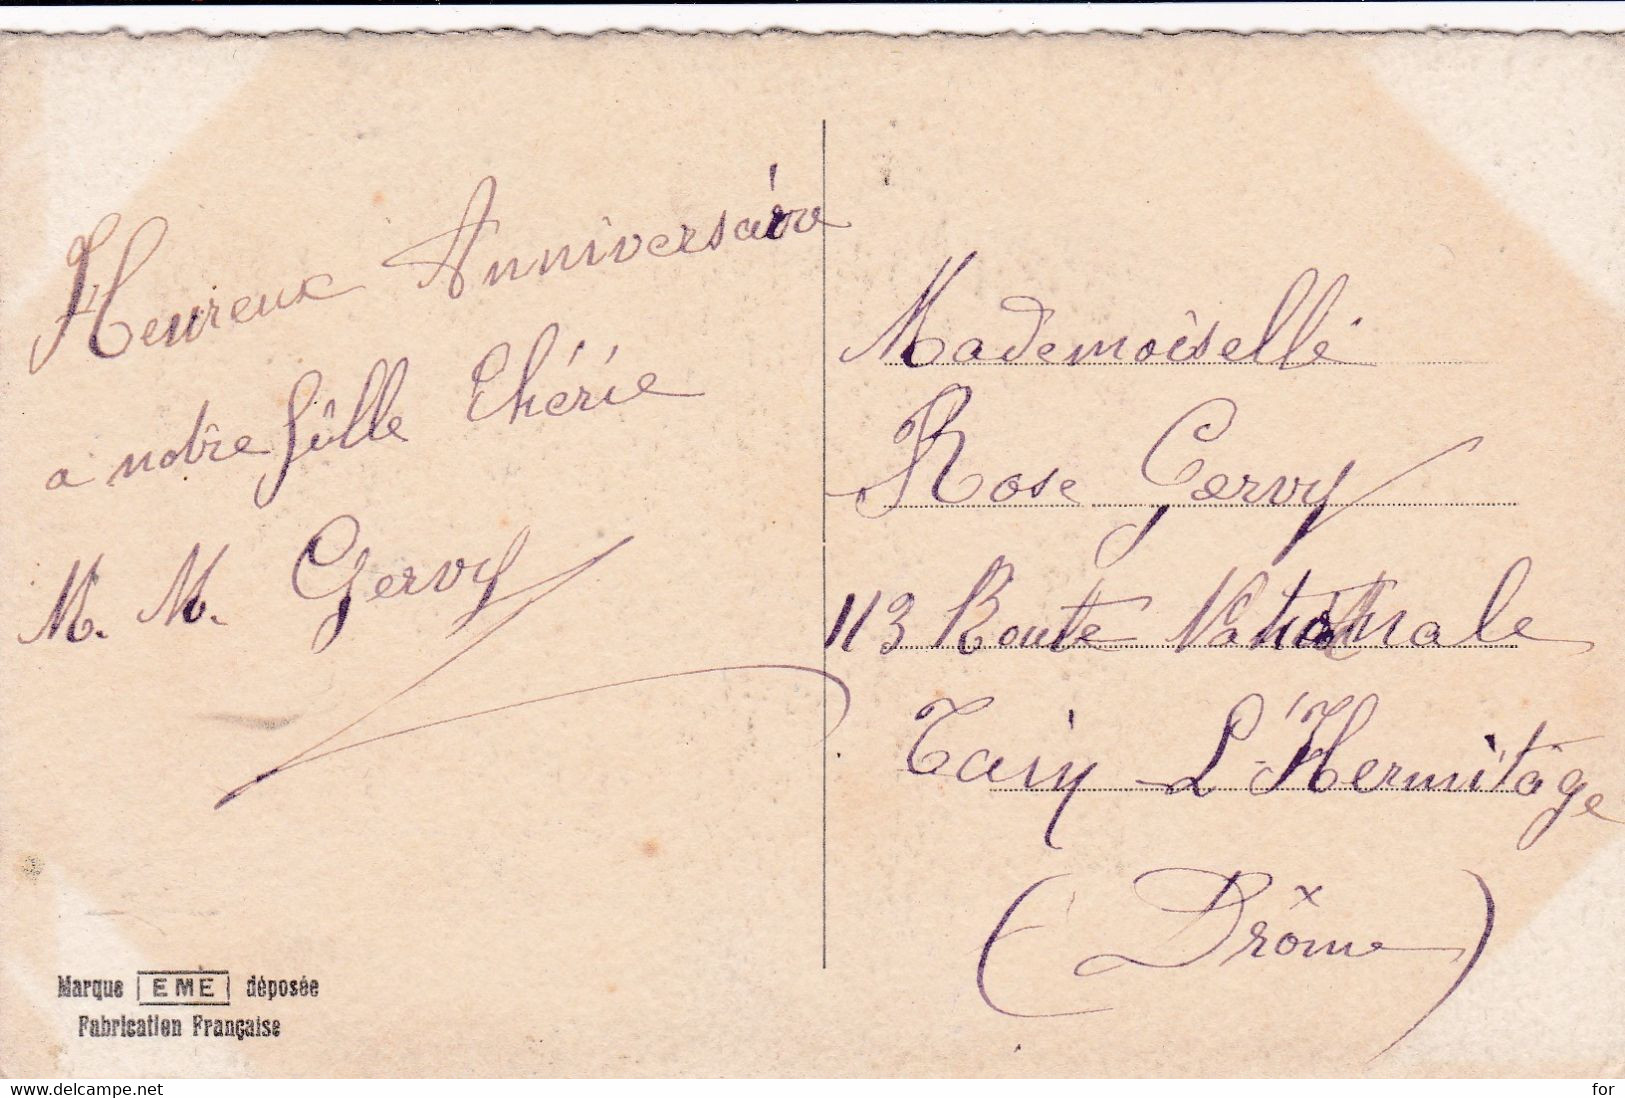 Heureux Anniversaire
a notre fille Chérie
M. M. Gervy
Mademoiselle
Rose Gervy
113 Route Nationale
Tain L'Hermitage
(Drôme)
Marque EME déposée
Fabrication Française
website: delcampe.net
for